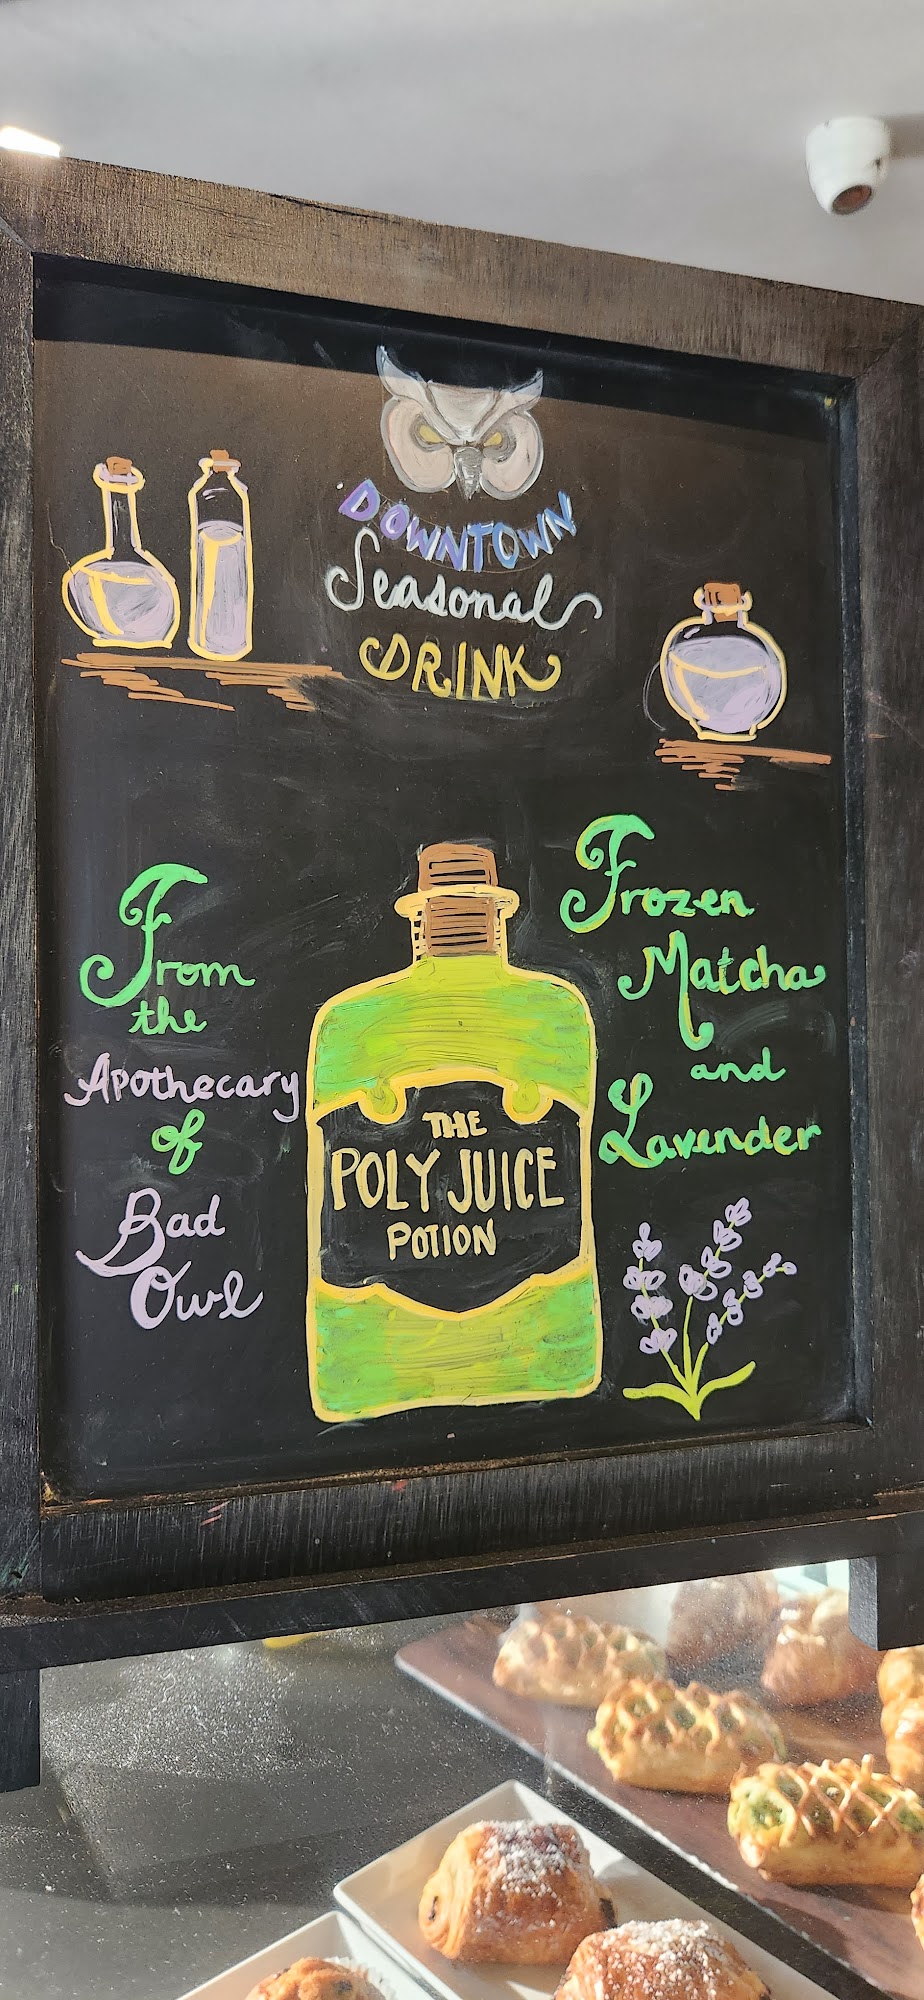 DOWNTOWN
Seasonal
DRINK
From
the
Apothecary
of
Bad
Owl
THE
POLY JUICE
POTION
Frozen
Matcha
and
Lavender